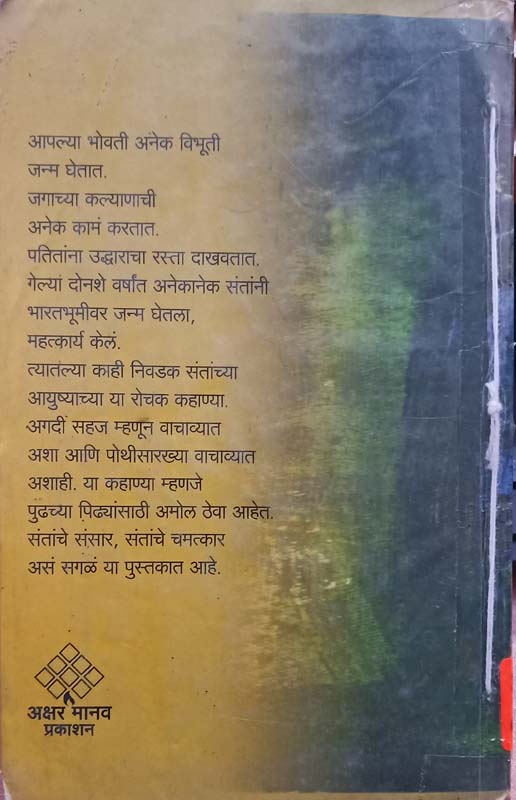 आपल्या भोवती अनेक विभूती
जन्म घेतात.
जगाच्या कल्याणाची
अनेक कामं करतात.
पतितांना उद्धाराचा रस्ता दाखवतात.
गेल्या दोनशे वर्षांत अनेकानेक संतांनी
भारतभूमीवर जन्म घेतला,
महत्कार्य केलं.
त्यातल्या काही निवडक संतांच्या
आयुष्याच्या या रोचक कहाण्या.
अगदी सहज म्हणून वाचाव्यात
अशा आणि पोथीसारख्या वाचाव्यात
अशाही. या कहाण्या म्हणजे
पुढच्या पिढ्यांसाठी अमोल ठेवा आहेत.
संतांचे संसार, संतांचे चमत्कार
असं सगळं या पुस्तकात आहे.
अक्षर मानव
प्रकाशन